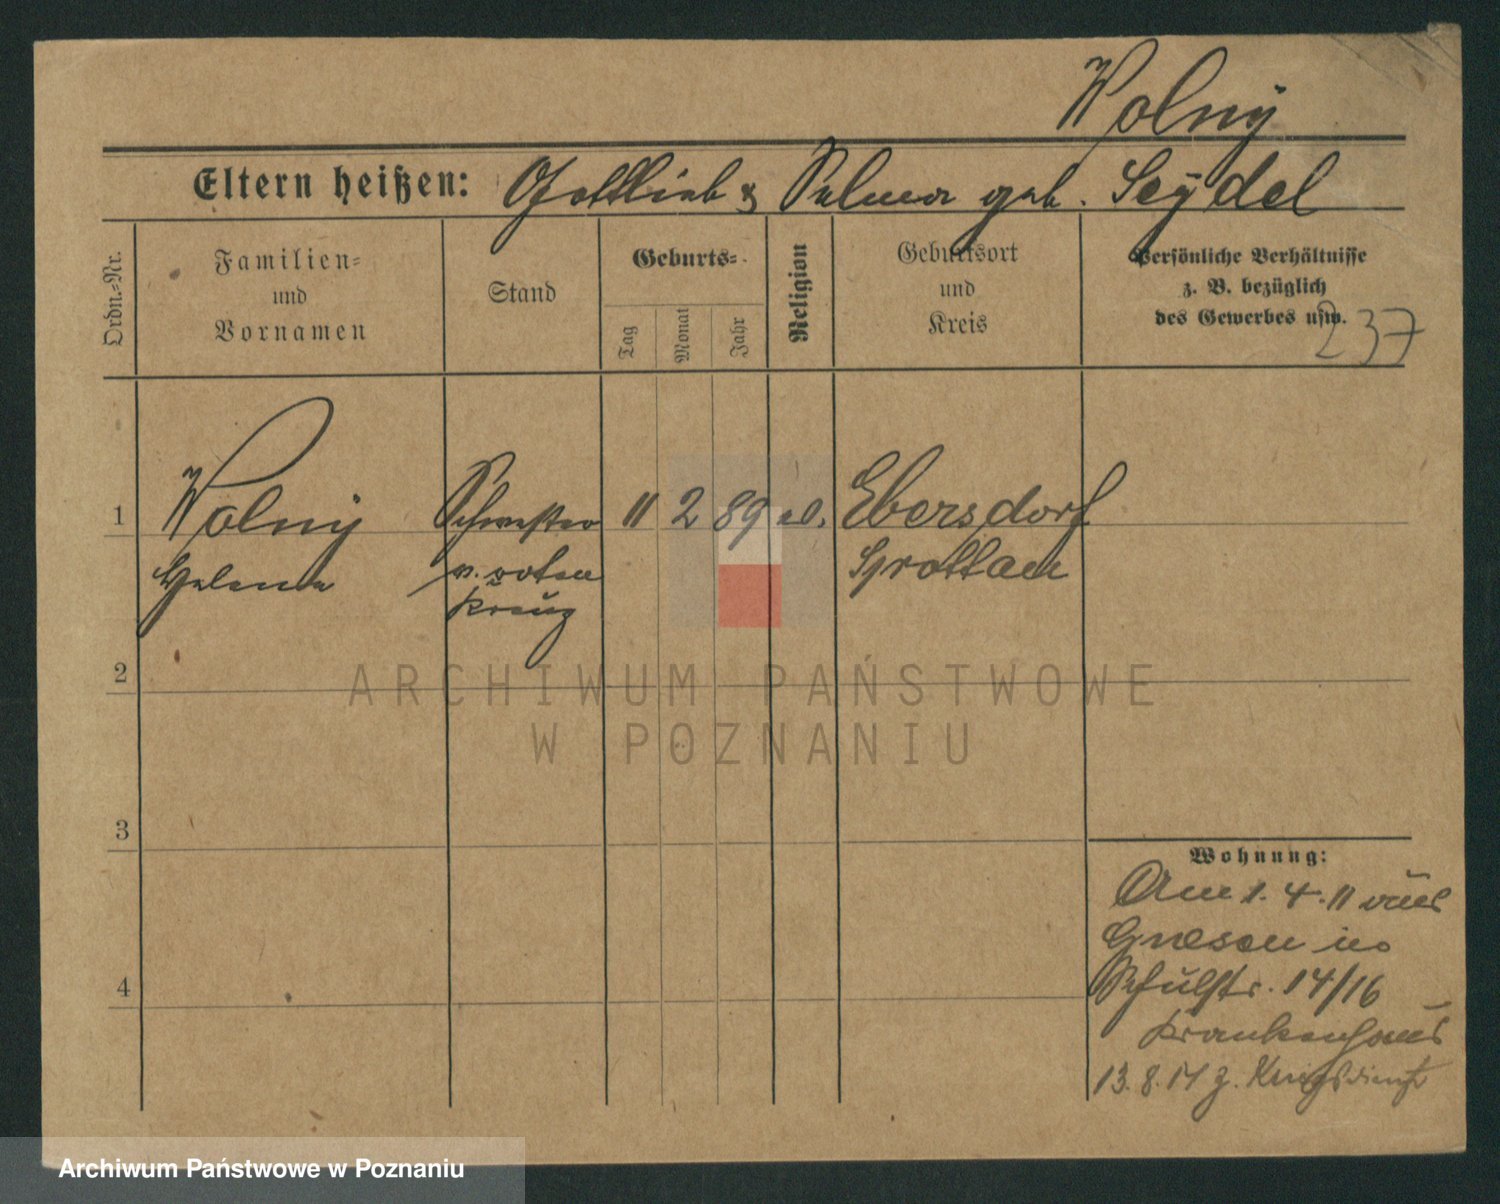 Wolny
Eltern heißen: Gottlieb & Selma geb. Seydel
Ordn.-Nr.
Familien-
und
Vornamen
Stand
Geburts-
Tag
Monat
Jahr
Religion
Geburtsort
und
Kreis
Persönliche Verhältnisse
z. B. bezüglich
des Gewerbes usw.
237
1
Wolny
Helene
Schwester
v. roten
Kreuz
11 2 89 ev.
Ebersdorf
Grottkau
2
3
4
Wohnung:
Am 1. 4. 11 aus
Gnesen in
Schulstr. 14/16
Krankenhaus
13. 8. 14 z. Kriegsdienst
ARCHIWUM PAŃSTWOWE
W POZNANIU
Archiwum Państwowe w Poznaniu